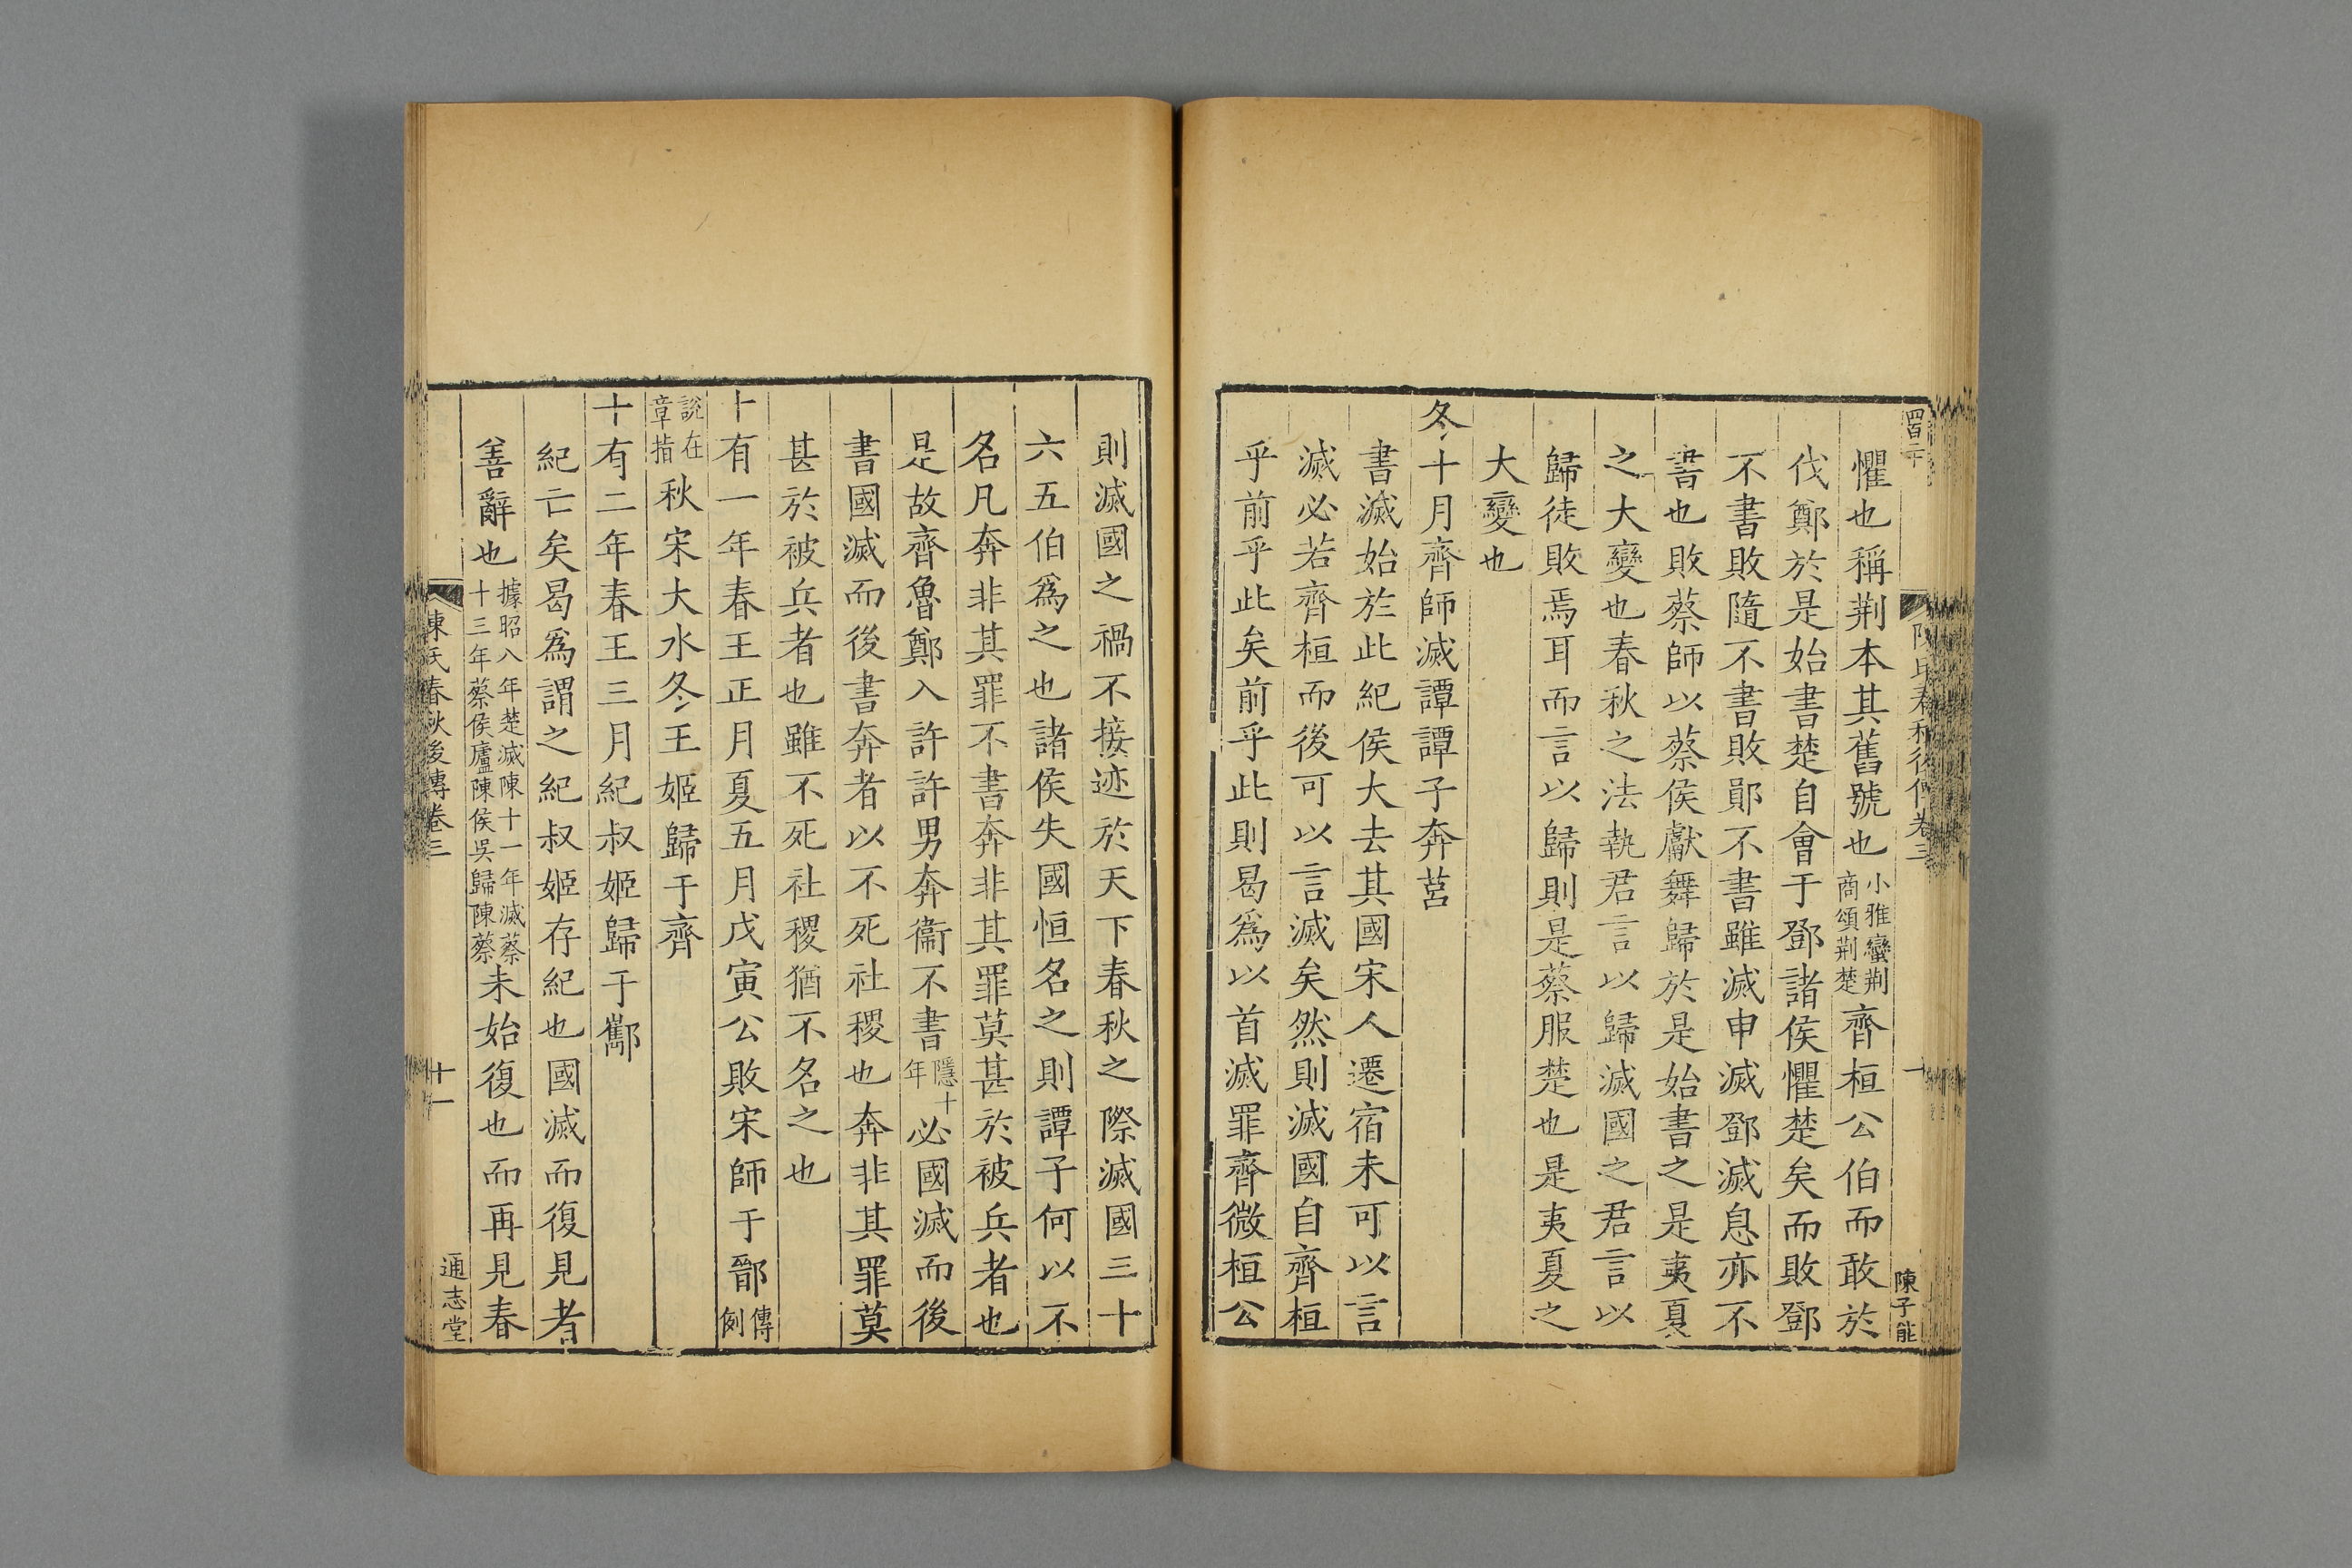 四百二十
陳氏春秋後傳卷三
陳子能
懼也稱荆本其舊號也小雅蠻荆商頌荆楚齊桓公伯而敢於
伐鄭於是始書楚自會于鄧諸侯懼楚矣而敗鄧
不書敗隨不書敗鄖不書雖滅申滅鄧滅息亦不
書也敗蔡師以蔡侯獻舞歸於是始書之是夷夏
之大變也春秋之法執君言以歸滅國之君言以
歸徒敗焉耳而言以歸則是蔡服楚也是夷夏之
大變也
冬十月齊師滅譚譚子奔莒
書滅始於此紀侯大去其國宋人遷宿未可以言
滅必若齊桓而後可以言滅矣然則滅國自齊桓
乎前乎此矣前乎此則曷爲以首滅罪齊微桓公
則滅國之禍不接迹於天下春秋之際滅國三十
六五伯爲之也諸侯失國恒名之則譚子何以不
名凡奔非其罪不書奔非其罪莫甚於被兵者也
是故齊魯鄭入許許男奔衞不書隱十年必國滅而後
書國滅而後書奔者以不死社稷也奔非其罪莫
甚於被兵者也雖不死社稷猶不名之也
十有一年春王正月夏五月戊寅公敗宋師于鄑傳例
說在章指秋宋大水冬王姬歸于齊
十有二年春王三月紀叔姬歸于酅
紀亡矣曷爲謂之紀叔姬存紀也國滅而復見者
善辭也據昭八年楚滅陳十一年滅蔡十三年蔡侯廬陳侯吳歸陳蔡未始復也而再見春
陳氏春秋後傳卷三
十一
通志堂